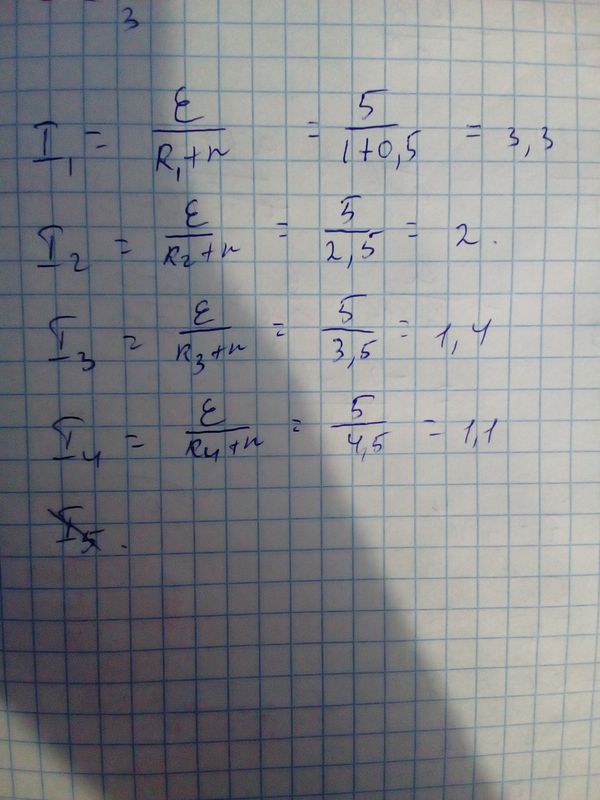 3
I₁ = ε/(R₁+r) = 5/(1+0,5) = 3,3
I₂ = ε/(R₂+r) = 5/2,5 = 2.
I₃ = ε/(R₃+r) = 5/3,5 = 1,4
I₄ = ε/(R₄+r) = 5/4,5 = 1,1
I₅.